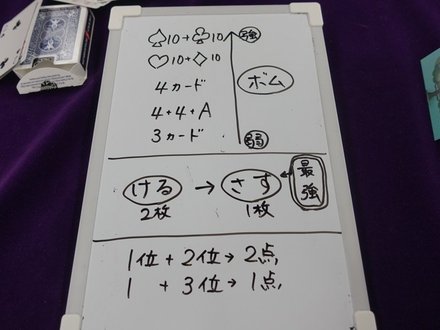 ♤10+♧10 強
♡10+♢10
4カード ボム
4+4+A
3カード 弱
ける → さす ← 最強
2枚 1枚
1位+2位→2点
1 +3位→1点